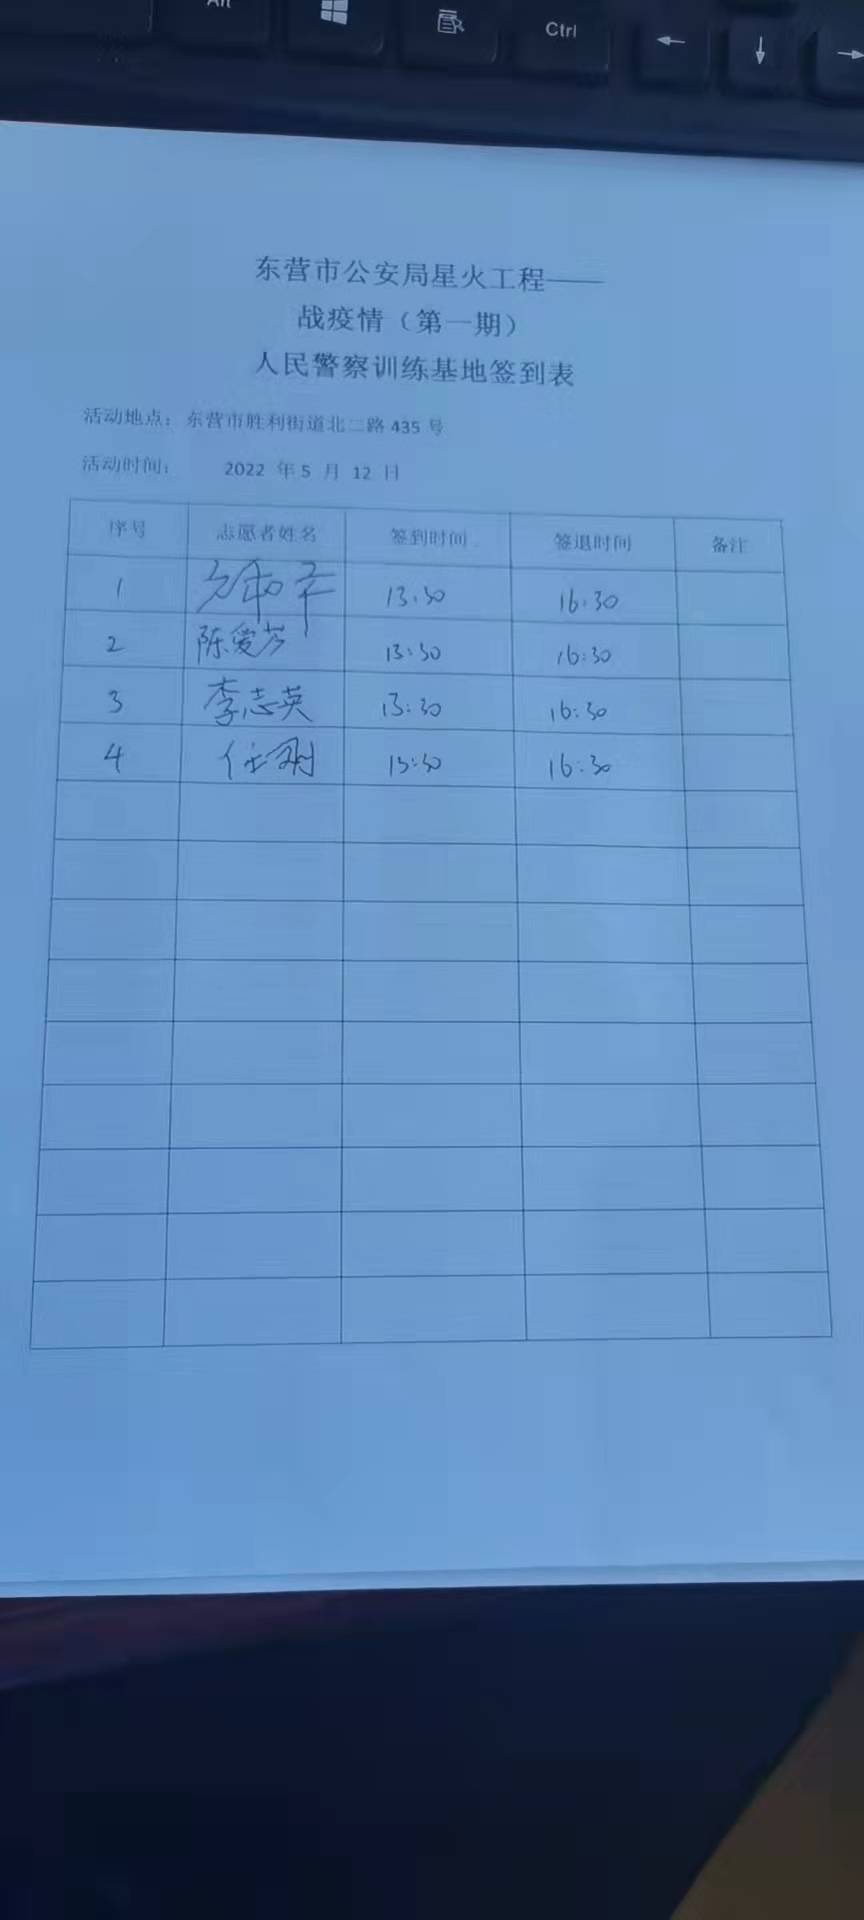 Alt
Ctrl
东营市公安局星火工程——
战疫情（第一期）
人民警察训练基地签到表
活动地点：东营市胜利街道北二路 435 号
活动时间： 2022 年 5 月 12 日
序号 志愿者姓名 签到时间 签退时间 备注
1 13:30 16:30
2 陈爱芳 13:30 16:30
3 李志英 13:30 16:30
4 任刚 13:30 16:30